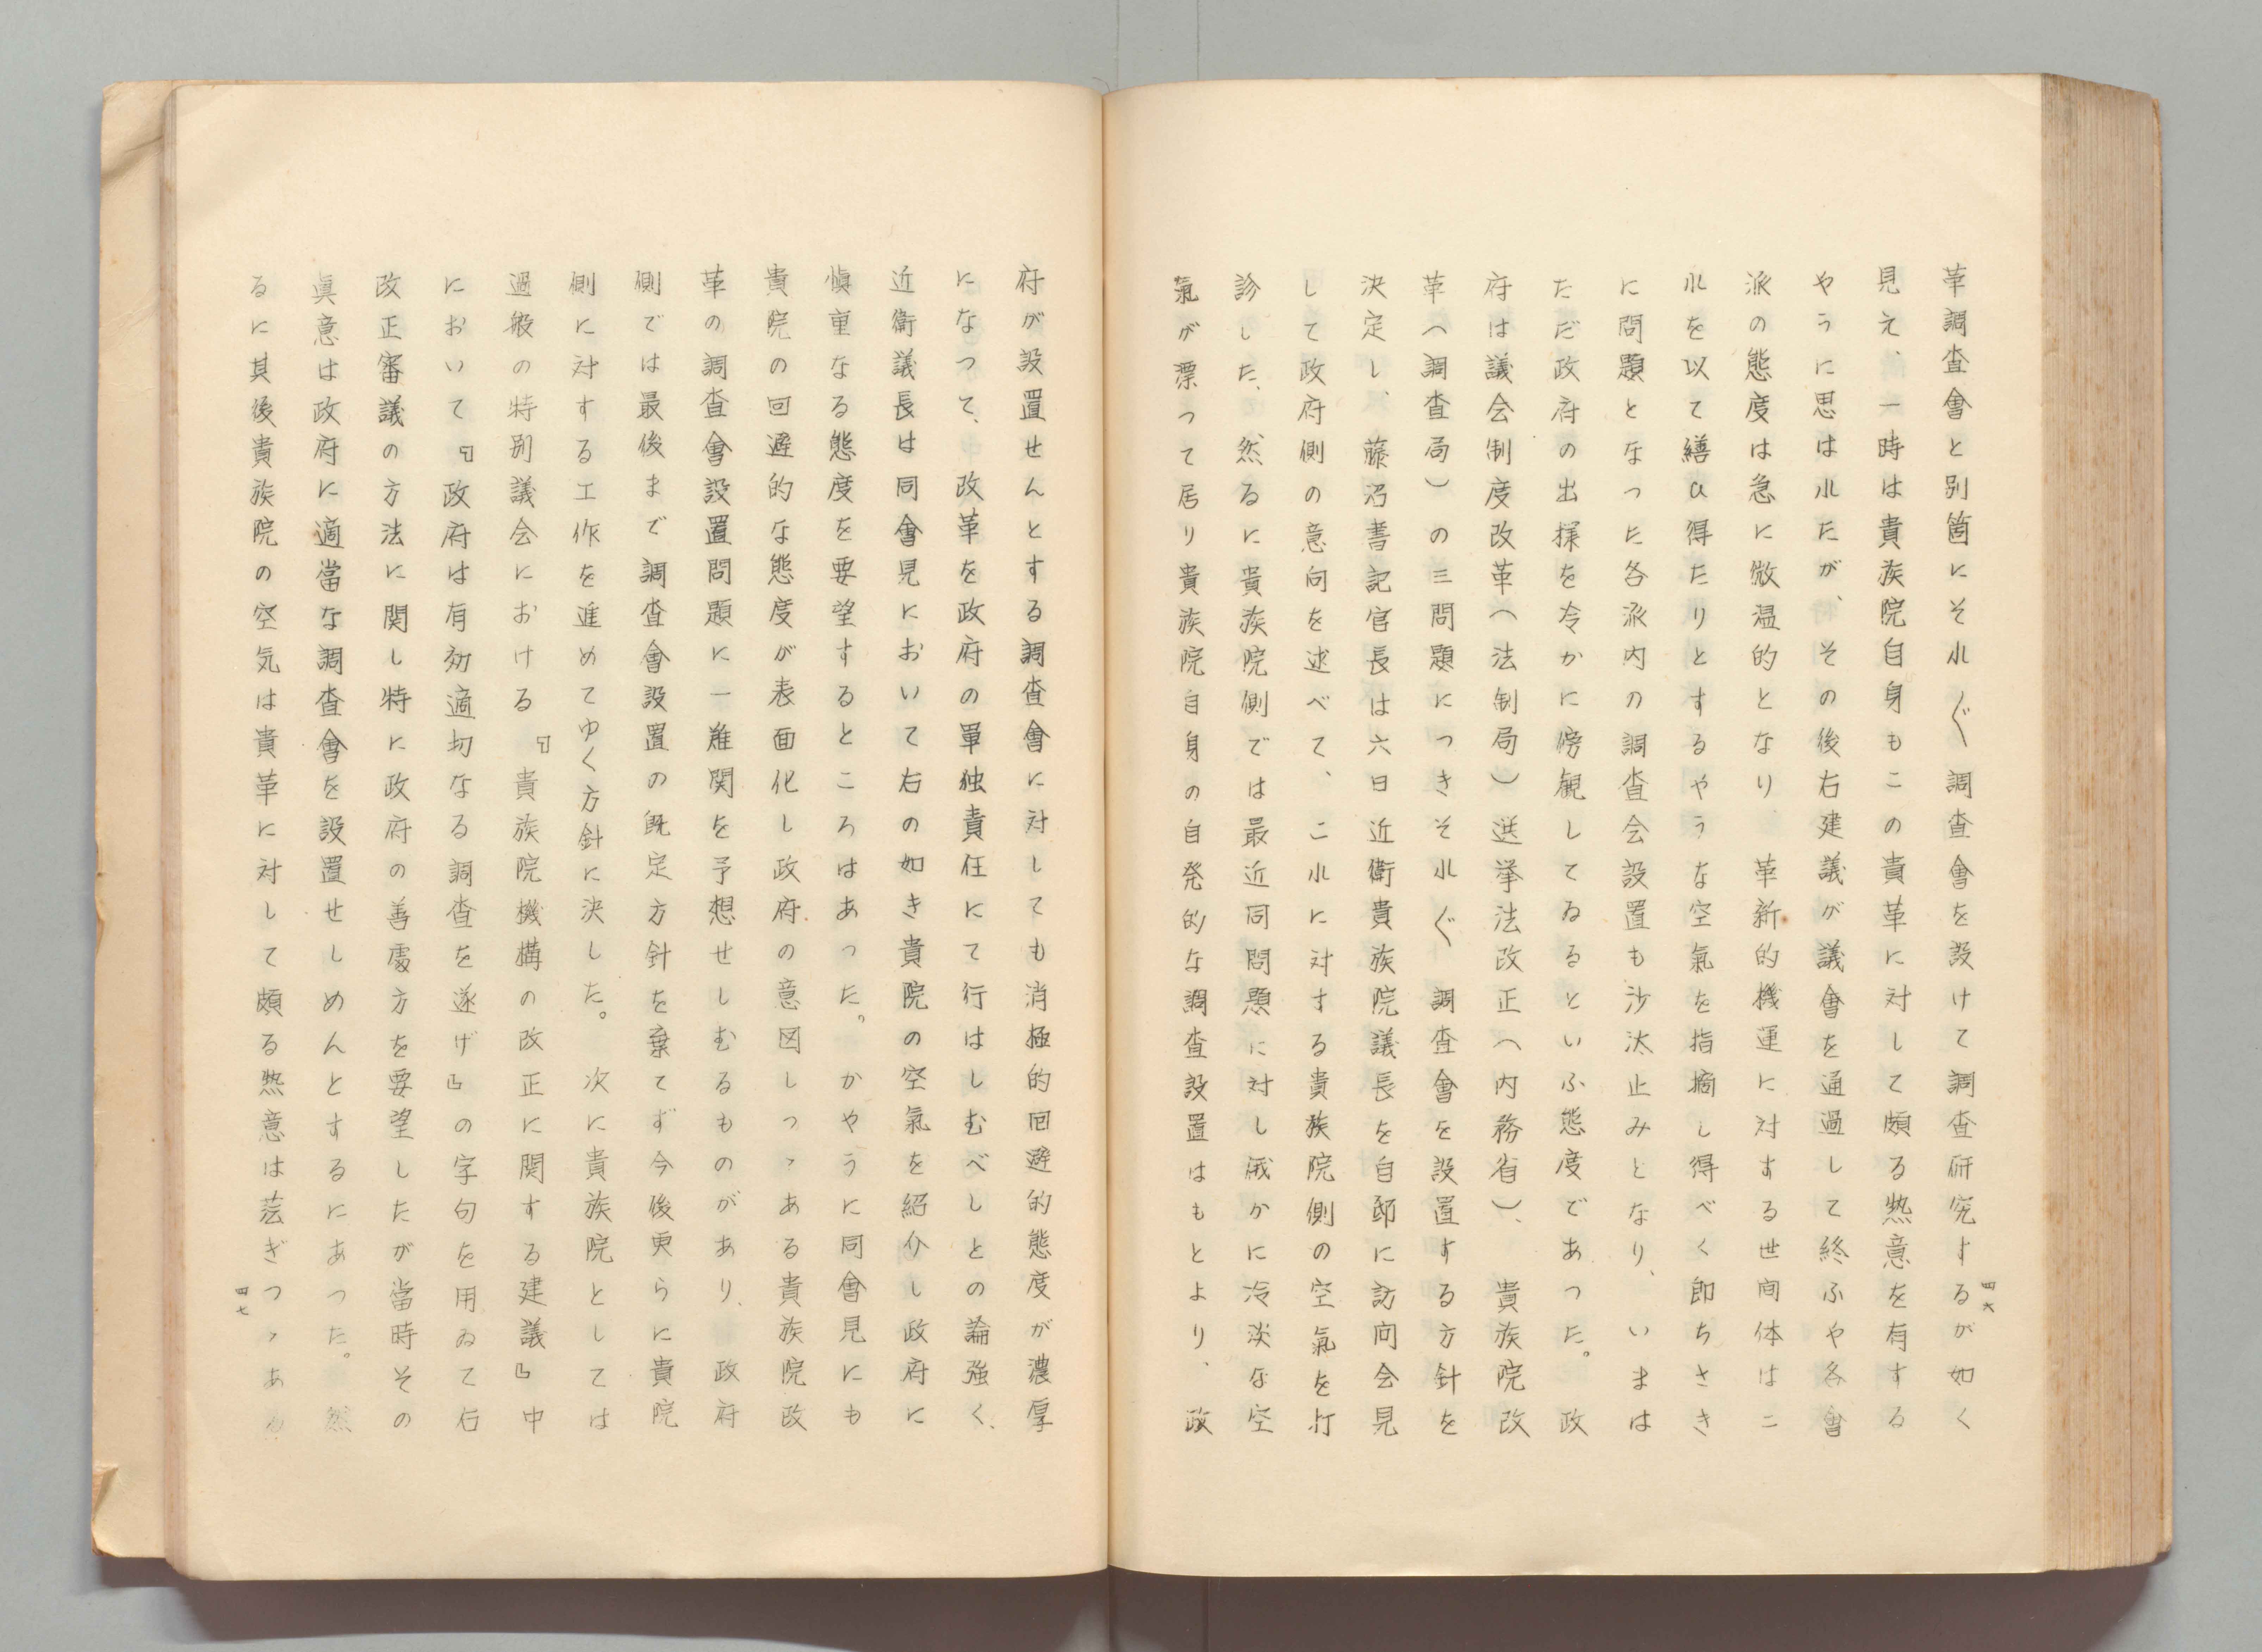 革調査會と別箇にそれ〲調査會を設けて調査研究するが如く
見え、一時は貴族院自身もこの貴革に対して頗る熱意を有する
やうに思はれたが、その後右建議が議會を通過して終ふや各會
派の態度は急に微温的となり、革新的機運に対する世間体はこ
れを以て繕ひ得たりとするやうな空氣を指摘し得べく即ちさき
に問題となつた各派内の調査会設置も沙汰止みとなり、いまは
ただ政府の出様を冷かに傍観してゐるといふ態度であつた。政
府は議会制度改革(法制局)選挙法改正(内務省)、貴族院改
革(調査局)の三問題につきそれ〲調査會を設置する方針を
決定し、藤沼書記官長は六日近衛貴族院議長を自邸に訪問会見
して政府側の意向を述べて、これに対する貴族院側の空氣を打
診した、然るに貴族院側では最近同問題に対し俄かに冷淡な空
氣が漂つて居り貴族院自身の自発的な調査設置はもとより、政
四六
府が設置せんとする調査會に対しても消極的回避的態度が濃厚
になつて、改革を政府の單独責任にて行はしむべしとの論強く、
近衛議長は同會見において右の如き貴院の空氣を紹介し政府に
愼重なる態度を要望するところはあつた。かやうに同會見にも
貴院の回避的な態度が表面化し政府の意図しつゝある貴族院改
革の調査會設置問題に一難関を予想せしむるものがあり、政府
側では最後まで調査會設置の既定方針を棄てず今後更らに貴院
側に対する工作を進めてゆく方針に決した。次に貴族院としては
過般の特別議会における『貴族院機構の改正に関する建議』中
において『政府は有効適切なる調査を遂げ』の字句を用ゐて右
改正審議の方法に関し特に政府の善處方を要望したが當時その
眞意は政府に適當な調査會を設置せしめんとするにあつた。然
るに其後貴族院の空気は貴革に対して頗る熱意は薄ぎつゝある
四七